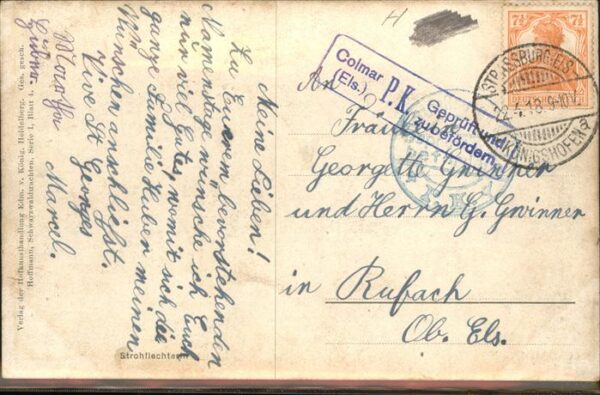 H
7½
7½
STRASSBURG-ELS.
22.4.18.9-10V
KÖNIGSHOFEN
Colmar
(Els.)
P.K.
Geprüft und
zu befördern.
An
Fräulein
Georgette Gwinner
und Herrn G. Gwinner
in Rufach
Ob. Els.
Meine Lieben!
Zu Eurem bevorstehenden
Namenstage wünsche ich Euch
nur viel Gutes, womit sich die
ganze Familie Huber meinen
Wünschen anschließt.
Vive St Georges
Marcel.
Strohflechterin
Verlag der Hofkunsthandlung Edm. v. König, Heidelberg. Ges. gesch.
Hoffmann, Schwarzwaldtrachten, Serie I, Blatt